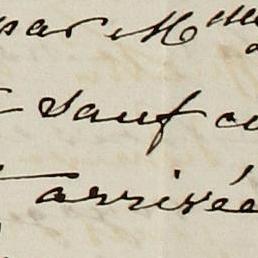 par Mme
sauf
arrivée